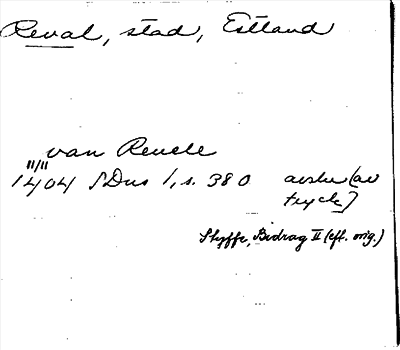 Reval, stad, Estland
van Reuele
11/11
1404 SDns 1, s. 380 avskr (av
tryck)
Styffe, Bidrag II (eft. orig.)